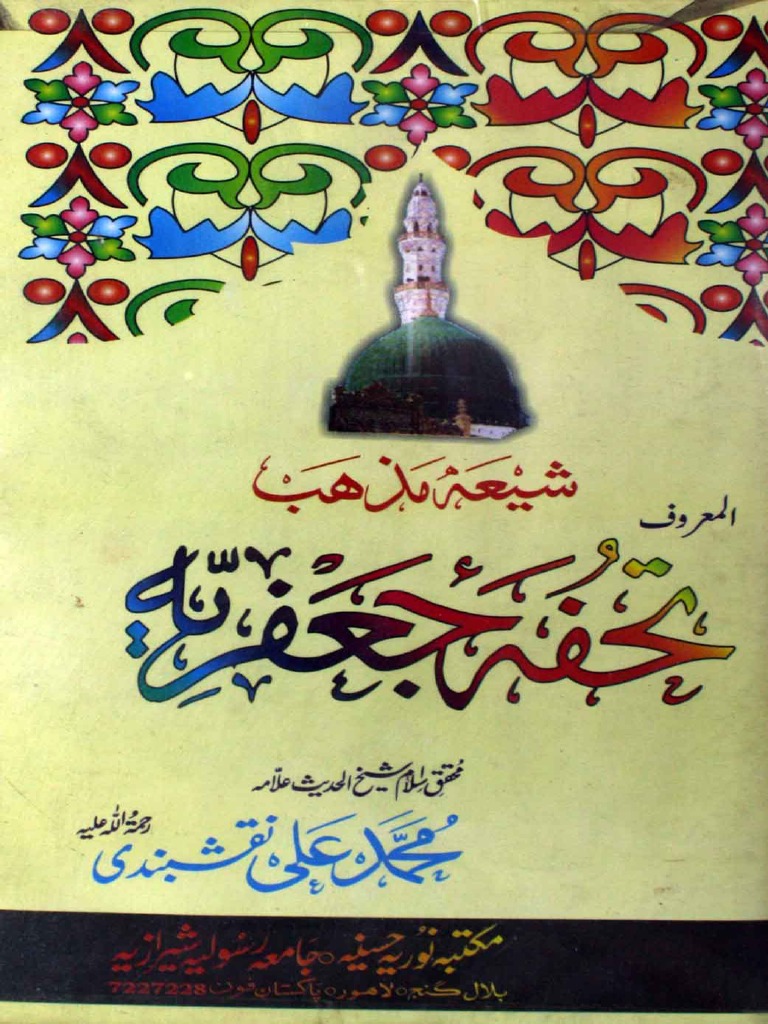 شیعہ مذہب
المعروف
تحفہ جعفریہ
محقق اسلام شیخ الحدیث علامہ
محمد علی نقشبندی رحمۃ اللہ علیہ
مکتبہ نوریہ حسینیہ ○ جامعہ رسولیہ شیرازیہ
بلال گنج ○ لاہور ○ پاکستان فون 7227228